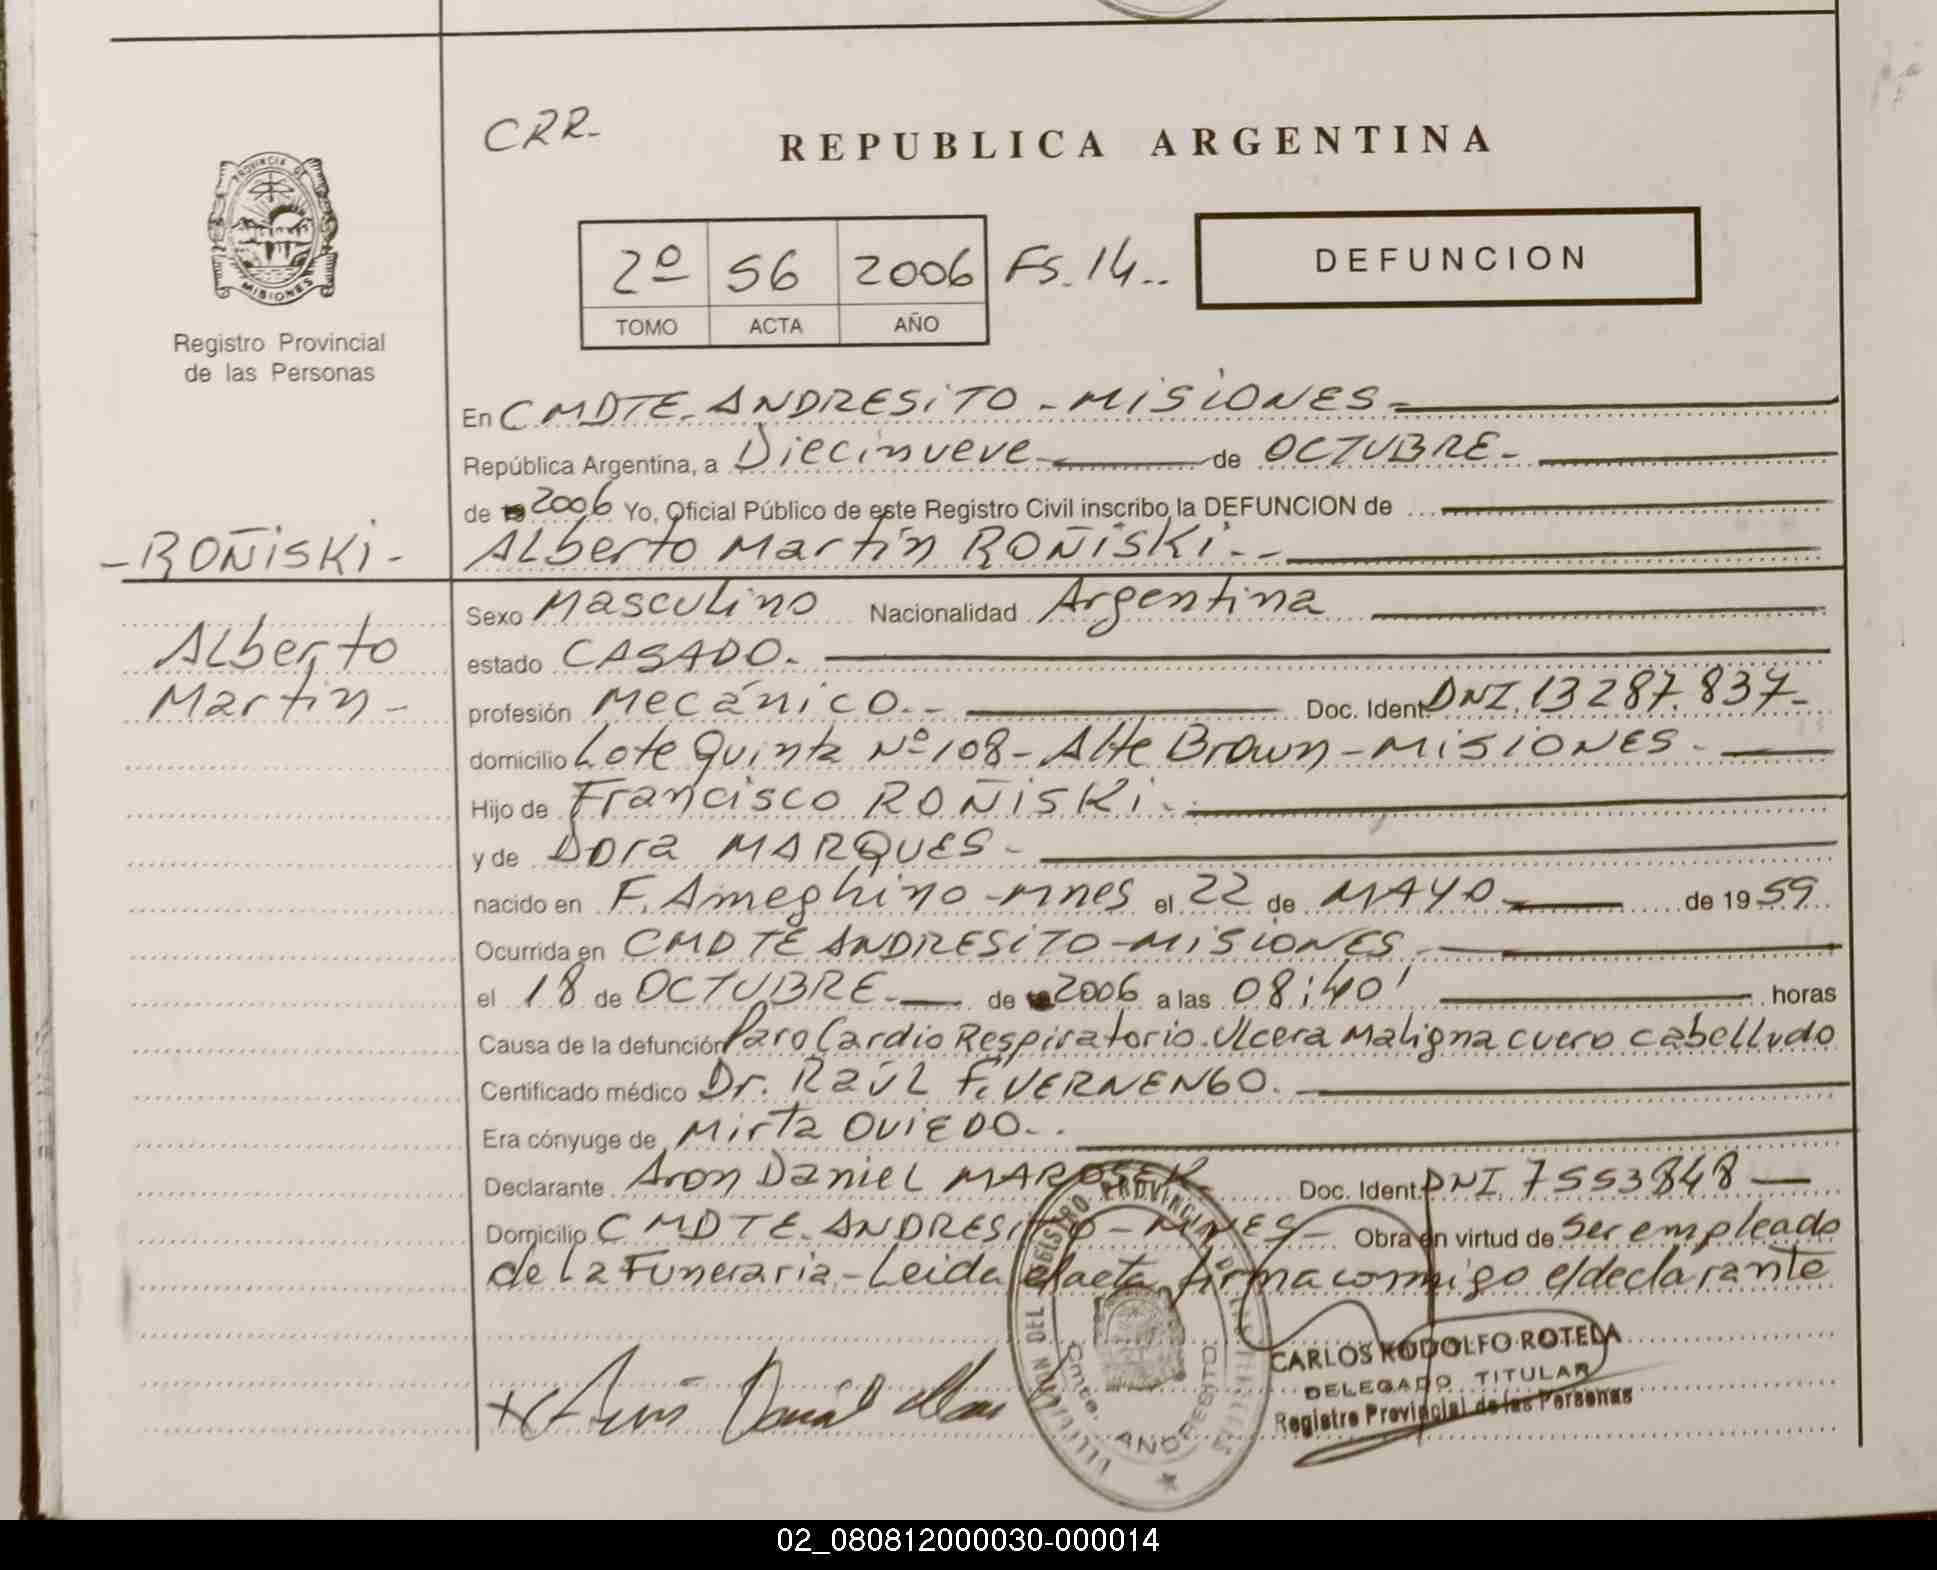 CRR-
REPUBLICA ARGENTINA
PROVINCIA DE
MISIONES
2º 56 2006 Fs. 14..
TOMO ACTA AÑO
DEFUNCION
Registro Provincial
de las Personas
En CMDTE. ANDRESITO - MISIONES -
República Argentina, a Diecinueve de OCTUBRE -
de 2006 Yo, Oficial Público de este Registro Civil inscribo la DEFUNCION de
- ROÑISKI -
Alberto Martín ROÑISKI. - -
Alberto
Martin -
Sexo Masculino Nacionalidad Argentina
estado CASADO.
profesión Mecánico. - Doc. Ident. DNI. 13287.837-
domicilio Lote Quinta Nº 108 - Alte Brown - MISIONES -
Hijo de Francisco ROÑISKI. -
y de Dora MARQUES -
nacido en F. Ameghino - Mnes el 22 de MAYO de 19 59
Ocurrida en CMDTE ANDRESITO - MISIONES
el 18 de OCTUBRE. de 2006 a las 08:40' horas
Causa de la defunción Paro Cardio Respiratorio. Ulcera Maligna cuero cabelludo
Certificado médico Dr. RAÚL F. VERNENGO.
Era cónyuge de Mirta OVIEDO. .
Declarante Aron Daniel MAROSEK Doc. Ident. DNI 7553848
Domicilio CMDTE. ANDRESITO - MNES - Obra en virtud de ser empleado
de la Funeraria, - Leida el acta, firma conmigo el declarante
DEL REGISTRO PROVINCIAL DE LAS
Cmte. ANDRESITO
CARLOS RODOLFO ROTELA
DELEGADO TITULAR
Registro Provincial de las Personas
02_080812000030-000014